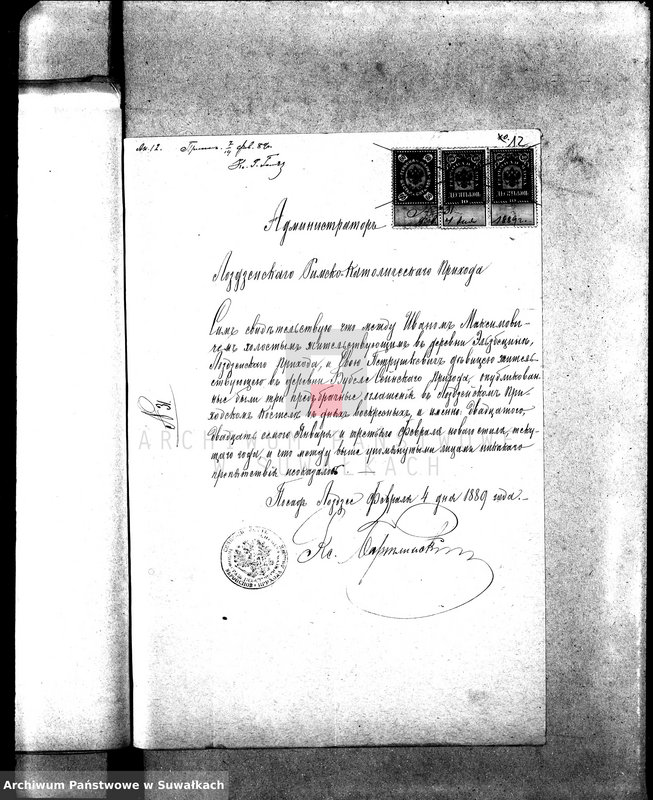 № 12.
12
1889 г.
Администраторъ
Лоздзенскаго Римско-Католическаго Прихода
Симъ свидѣтельствую что между Иваномъ Максимови-
чемъ холостымъ жительствующимъ въ деревни
Лоздзенскаго Прихода, и Евою Петрушкевичъ дѣвицею житель-
ствующею въ деревни Прихода, опубликован-
ные были три предбрачные оглашенія въ Лоздзенскомъ При-
ходскомъ Костелѣ въ дняхъ воскресныхъ, а именно: двадцатаго,
двадцать седьмого Января и третьяго Февраля новаго стиля, теку-
щаго года, и что между выше упомянутыми лицами никакого
препятствія неоказалось
Посадъ Лоздзее Февраля 4 дня 1889 года.
Кс.
ARCHIWUM PAŃSTWOWE
W SUWAŁKACH
Archiwum Państwowe w Suwałkach